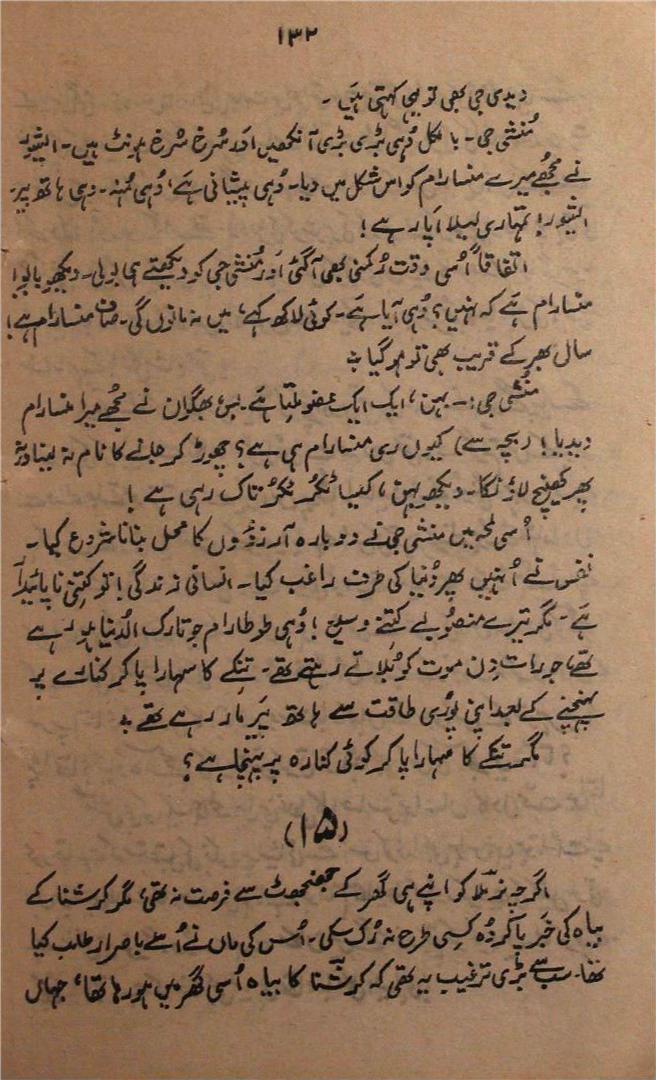 ۱۳۲
دیدی جی بھی تو یہی کہتی ہیں ۔
مُنشی جی ۔ بالکل وُہی بڑی بڑی آنکھیں اور سُرخ سُرخ ہونٹ ہیں ۔ ایشور
نے مجھے میرے منسارام کو اس شکل میں دیا ۔ وُہی پیشانی ہے، وُہی مُنہ ۔ وہی ہاتھ پیر ۔
ایشور! تمہاری لیلا اَپار ہے!
اتفاقاً اُسی وقت رُکمنی بھی آگئی اور مُنشی جی کو دیکھتے ہی بولی ۔ دیکھو بابو!
منسارام ہے کہ نہیں؟ وُہی آیا ہے ۔ کوئی لاکھ کہے، میں نہ مانوں گی ۔ صاف منسارام ہے!
سال بھر کے قریب بھی تو ہو گیا ؞
مُنشی جی :۔ بہن، ایک ایک عضو ملتا ہے ۔ بس بھگوان نے مجھے میرا منسارام
دیدیا! (بچہ سے) کیوں ری منسارام ہی ہے؟ چھوڑ کر جانے کا نام نہ لینا ورنہ
پھر کھینچ لاؤنگا ۔ دیکھو بہن، کیسا ٹکُر ٹکُر تاک رہی ہے!
اُسی لمحہ میں منشی جی نے دوبارہ آرزؤوں کا محل بنانا شروع کیا ۔
نفس نے اُنہیں پھر دُنیا کی طرف راغب کیا ۔ انسانی زندگی! تو کتنی ناپائیدار
ہے ۔ مگر تیرے منصُوبے کتنے وسیع! وُہی طوطارام جو تارک الدُنیا ہو رہے
تھے، جو رات دِن موت کو بُلاتے رہتے تھے ۔ تِنکے کا سہارا پا کر کنارے پر
پہنچنے کے لئے اپنی پُوری طاقت سے ہاتھ پَیر مار رہے تھے ؞
مگر تِنکے کا سہارا پا کر کوئی کنارہ پر پہنچا ہے؟
(۱۵)
اگرچہ نرملا کو اپنے ہی گھر کے جھنجھٹ سے فرصت نہ تھی، مگر کرشنا کے
بیاہ کی خبر پا کر وُہ کسی طرح نہ رُک سکی ۔ اُس کی ماں نے اُسے باصرار طلب کیا
تھا ۔ سب سے بڑی ترغیب یہ تھی کہ کرشنا کا بیاہ اُسی گھر میں ہو رہا تھا، جہاں